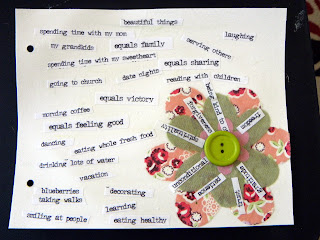 beautiful things
spending time with my mom
laughing
my grandkids
equals family
serving others
spending time with my sweetheart
equals sharing
going to church
date nights
reading with children
equals victory
being kind to
forgiveness
freedom
morning coffee
equals feeling good
spirituality
dancing
eating whole fresh food
drinking lots of water
unconditional
vacation
acceptance
blueberries
decorating
taking walks
learning
smiling at people
eating healthy